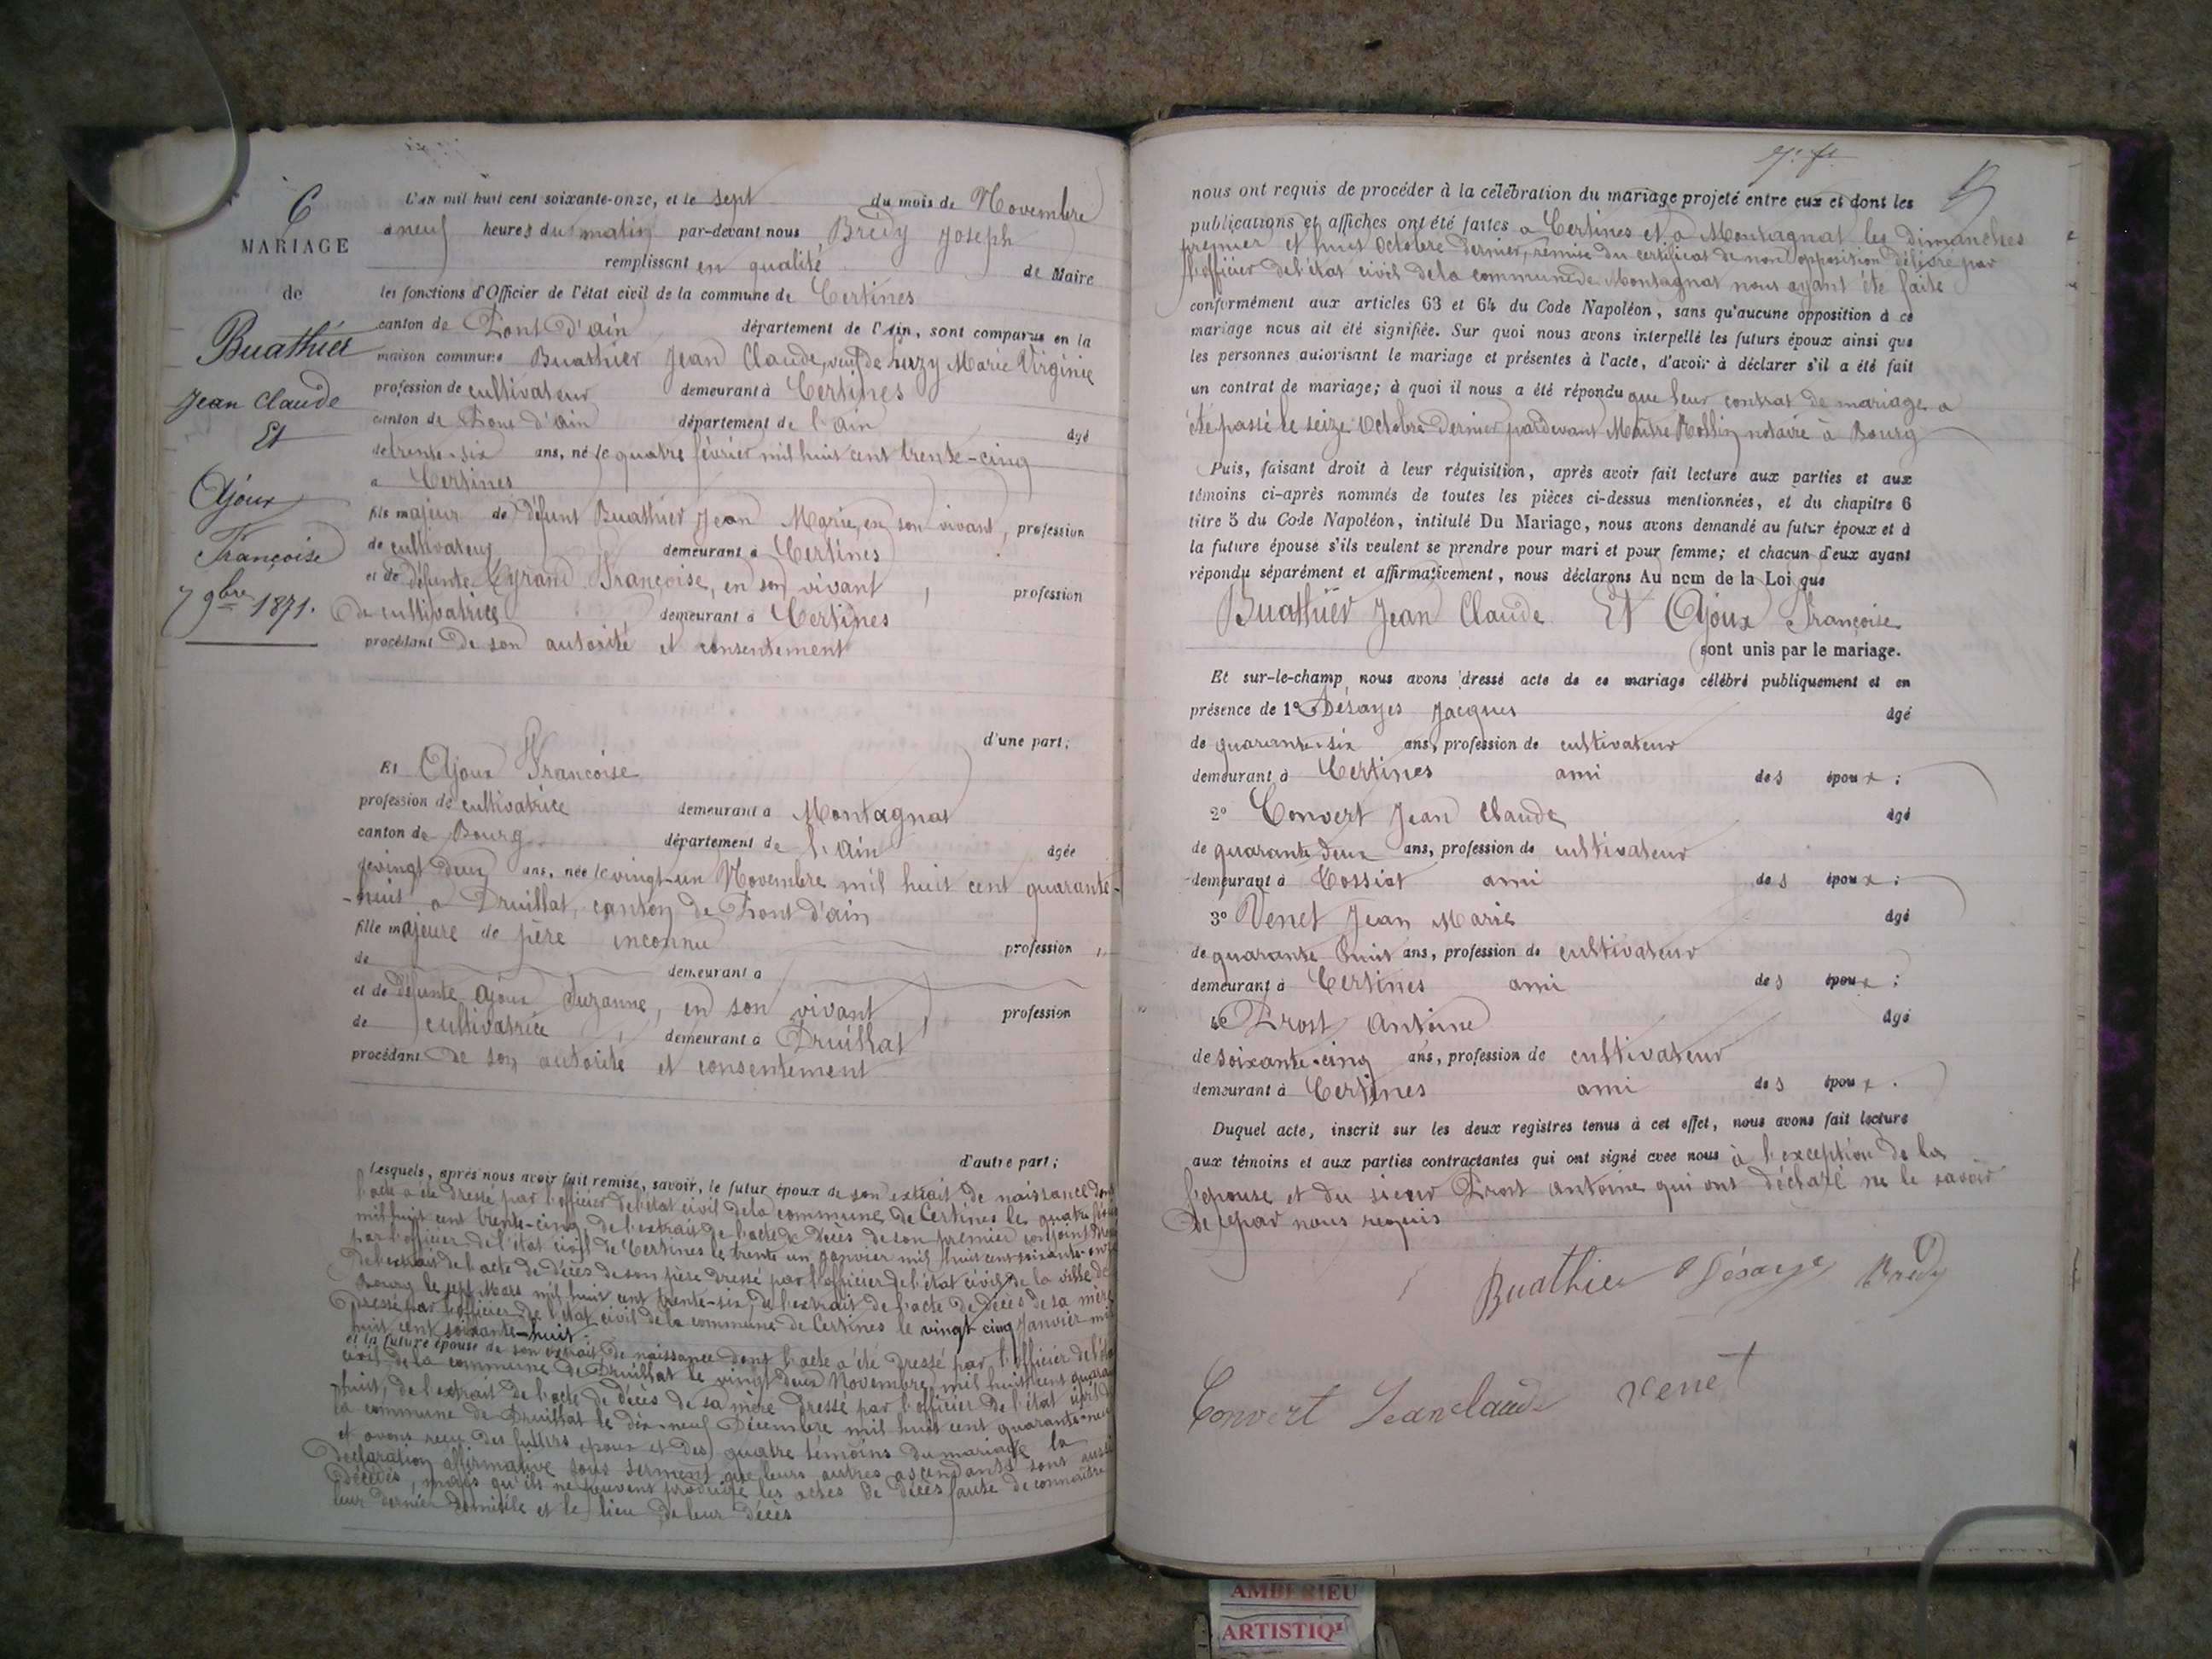 6
MARIAGE
de
Buathier
Jean Claude
Et
Ajoux
Françoise
7 9bre 1871.
L'AN mil huit cent soixante-onze, et le sept du mois de Novembre
à neuf heures du matin par-devant nous Brédy Joseph
remplissant en qualité de Maire
les fonctions d'Officier de l'état civil de la commune de Certines
canton de Pont d'ain département de l'Ain, sont comparus en la
maison commune Buathier Jean Claude, veuf de Marie Virginie
profession de cultivateur demeurant à Certines
canton de Pont d'ain département de l'ain âgé
de trente-six ans, né le quatre février mil huit cent trente-cinq
à Certines
fils majeur de défunt Buathier Jean Marie, en son vivant, profession
de cultivateur demeurant à Certines
et de défunte Françoise, en son vivant, profession
de cultivatrice demeurant à Certines
procédant de son autorité et consentement
d'une part;
Et Ajoux Françoise
profession de cultivatrice demeurant à Montagnat
canton de Bourg département de l'Ain âgée
de vingt deux ans, née le vingt-un Novembre mil huit cent quarante-
-huit à Druillat, canton de Pont d'ain
fille majeure de père inconnu profession
de demeurant à
et de défunte Ajoux Suzanne, en son vivant, profession
de cultivatrice, demeurant à Druillat
procédant de son autorité et consentement
d'autre part;
Lesquels, après nous avoir fait remise, savoir, le futur époux de son extrait de naissance dont
l'acte a été dressé par l'officier de l'état civil de la commune de Certines le quatre
mil huit cent trente-cinq, de l'extrait de l'acte de décès de son premier conjoint
par l'officier de l'état civil de Certines le trente un janvier mil huit cent soixante-onze
de l'extrait de l'acte de décès de son père dressé par l'officier de l'état civil de la ville de
Bourg le sept Mars mil huit cent trente-six, de l'extrait de l'acte de décès de sa mère
dressé par l'officier de l'état civil de la commune de Certines le vingt cinq janvier mil
huit cent soixante-huit;
et la future épouse de son extrait de naissance dont l'acte a été dressé par l'officier de l'état
civil de la commune de Druillat le vingt deux Novembre mil huit cent
-huit, de l'extrait de l'acte de décès de sa mère dressé par l'officier de l'état civil de
la commune de Druillat le dix-neuf Décembre mil huit cent quarante-neuf
et avons reçu des futurs époux et des quatre témoins du mariage la
déclaration affirmative sous serment que leurs autres ascendants sont aussi
décédés, mais qu'ils ne peuvent produire les actes de décès faute de connaître
leur dernier domicile et le lieu de leur décès
nous ont requis de procéder à la célébration du mariage projeté entre eux et dont les
publications et affiches ont été faites à Certines et à Montagnat les dimanches
premier et huit Octobre dernier, remise du certificat de non opposition délivré par
l'officier de l'état civil de la commune de Montagnat nous ayant été faite
conformément aux articles 63 et 64 du Code Napoléon, sans qu'aucune opposition à ce
mariage nous ait été signifiée. Sur quoi nous avons interpellé les futurs époux ainsi que
les personnes autorisant le mariage et présentes à l'acte, d'avoir à déclarer s'il a été fait
un contrat de mariage; à quoi il nous a été répondu que leur contrat de mariage a
été passé le seize Octobre dernier pardevant Maître Rollin notaire à Bourg
Puis, faisant droit à leur réquisition, après avoir fait lecture aux parties et aux
témoins ci-après nommés de toutes les pièces ci-dessus mentionnées, et du chapitre 6
titre 5 du Code Napoléon, intitulé Du Mariage, nous avons demandé au futur époux et à
la future épouse s'ils veulent se prendre pour mari et pour femme; et chacun d'eux ayant
répondu séparément et affirmativement, nous déclarons Au nom de la Loi que
Buathier Jean Claude Et Ajoux Françoise
sont unis par le mariage.
Et sur-le-champ nous avons dressé acte de ce mariage célébré publiquement et en
présence de 1° Désayes Jacques âgé
de quarante-six ans, profession de cultivateur
demeurant à Certines ami des époux;
2° Convert Jean Claude âgé
de quarante deux ans, profession de cultivateur
demeurant à Tossiat ami des époux;
3° Venet Jean Marie âgé
de quarante huit ans, profession de cultivateur
demeurant à Certines ami des époux;
4° Prost Antoine âgé
de soixante-cinq ans, profession de cultivateur
demeurant à Certines ami des époux.
Duquel acte, inscrit sur les deux registres tenus à cet effet, nous avons fait lecture
aux témoins et aux parties contractantes qui ont signé avec nous à l'exception de la
l'épouse et du sieur Prost Antoine qui ont déclaré ne le savoir
de ce par nous requis
Buathier Désayes Brédy
Convert Jean claude Venet
AMBERIEU
ARTISTIQ